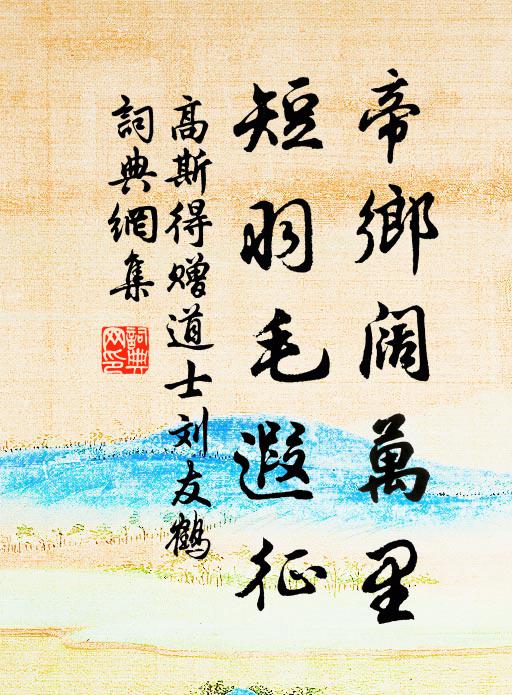 帝鄉阔萬里
短羽毛遐征
高斯得赠道士刘友鶴
詞典網集
詞典网印